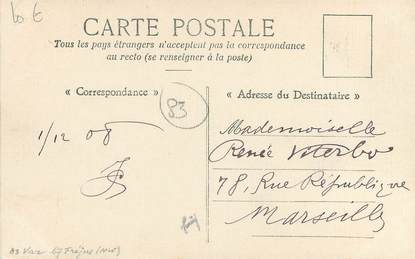 10 €
CARTE POSTALE
Tous les pays étrangers n'acceptent pas la correspondance
au recto (se renseigner à la poste)
« Correspondance »
« Adresse du Destinataire »
83
1/12 08
Mademoiselle
Renée Viterbo
78, Rue République
Marseille
83 Var
Fréjus